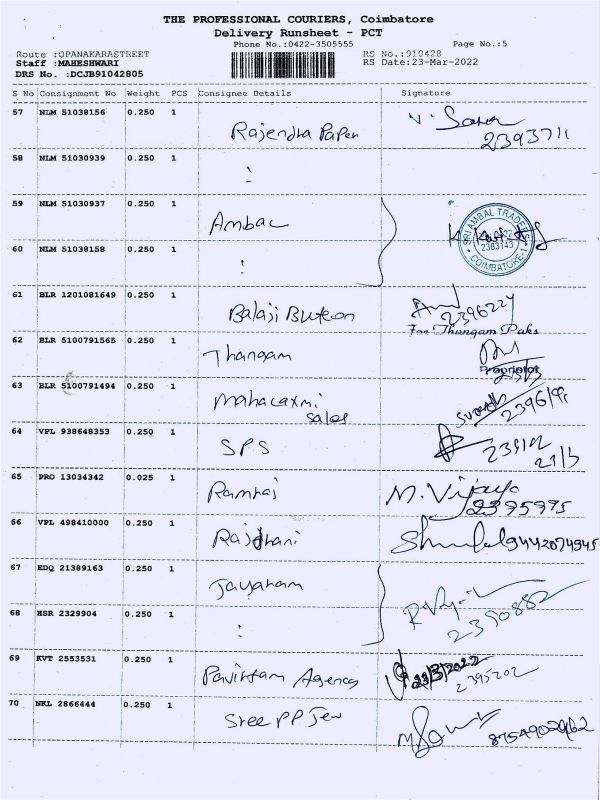 THE PROFESSIONAL COURIERS, Coimbatore
Delivery Runsheet - PCT
Phone No.:0422-3505555
Page No.:5
Route :OPANAKARASTREET
RS No.:910428
Staff :MAHESHWARI
RS Date:23-Mar-2022
DRS No. :DCJB91042805
S No Consignment No Weight PCS Consignee Details Signature
57 NLM 51038156 0.250 1 Rajendra Paper 2393711
58 NLM 51030939 0.250 1 :
59 NLM 51030937 0.250 1 Ambac
SRI AMBAL TRADERS
2383143
COIMBATORE-1
60 NLM 51038158 0.250 1 :
61 BLR 1201081649 0.250 1 Balaji Button 2396224
For Thangam Paks
62 BLR 5100791565 0.250 1 Thangam
Proprietor
63 BLR 5100791494 0.250 1 Mahalaxmi
Sales
64 VPL 938648353 0.250 1 SPS
65 PRO 13034342 0.025 1 Ramraj M. Vijaya
2395995
66 VPL 498410000 0.250 1 Rajdhani 9442074945
67 EDQ 21389163 0.250 1 Jayaram
2390882
68 HSR 2329904 0.250 1 :
69 KVT 2553531 0.250 1 Pavithram Agency 23/3/2022
2395202
70 NKL 2866444 0.250 1 Sree PP Jew